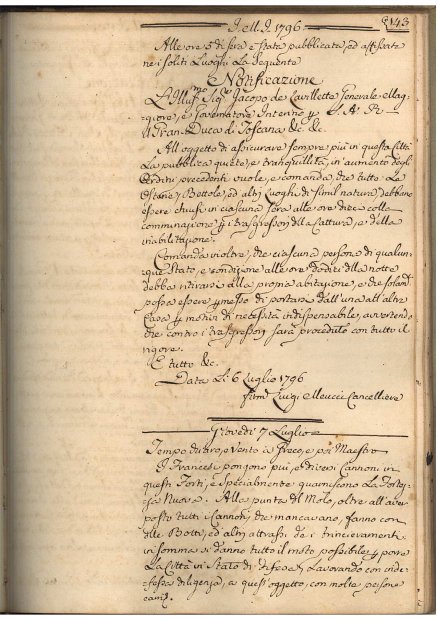 143
1796
Alle ore 5 di sera è stata pubblicata, ed affissata
nei soliti Luoghi La seguente
Notificazione
L'Illmo Sigr Jacopo de Lavillette Generale Mag-
giore, e Governatore Interino p S. A. R
Il Gran-Duca di Toscana &c. &c.
All'oggetto di assicurare sempre più in questa Città
La pubblica quiete, e tranquillità, in aumento degli
Ordini precedenti vuole, e comanda, che tutte Le
Osterie, Bettole, ed altri Luoghi di simil natura debbano
essere chiusi in ciascuna sera alle ore dieci colla
comminazione p i trasgressori della Cattura, e della
inabilitazione.
Comanda inoltre, che ciascuna persona di qualun-
que Stato, e condizione alle ore dodici della notte
debba ritirarsi alla propria abitazione, e che
possa essere permesso di portarsi dall'una all'altra
Casa p motivi di necessità indispensabile, avvertendo
che contro i trasgressori sarà proceduto con tutto il
rigore.
E tutto &c.
Data Li 6 Luglio 1796
Luigi Meucci Cancelliere
Giovedì 7 Luglio
Tempo e vento a Greco, e poi Maestro
I Francesi pongono più, e diversi Cannoni in
questi Forti, e specialmente La Fortez-
za Nuova. Alla punta del Molo, oltre all'aver
posto tutti i Cannoni, che mancavano, fanno con
delle Botti, ed altri attrassi de i trincieramenti
in somma si danno tutto il moto possibile p porre
La Città in Stato di difesa, Lavorando con inde-
fessa diligenza, a quest'oggetto, con molte persone